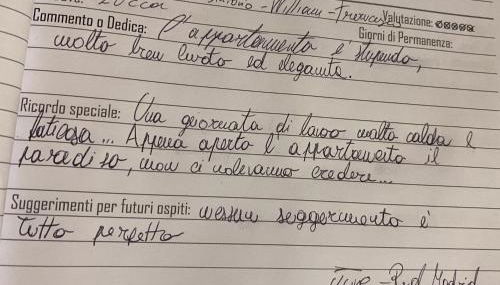 William - Frances
Valutazione:
Commento o Dedica: L'appartamento è stupendo,
Giorni di Permanenza:
molto ben curato ed elegante.
Ricordo speciale: Una giornata di lavoro molto calda e
faticosa... Appena aperto l'appartamento il
paradiso, non ci volevamo credere...
Suggerimenti per futuri ospiti: nessun suggerimento è
tutto perfetto